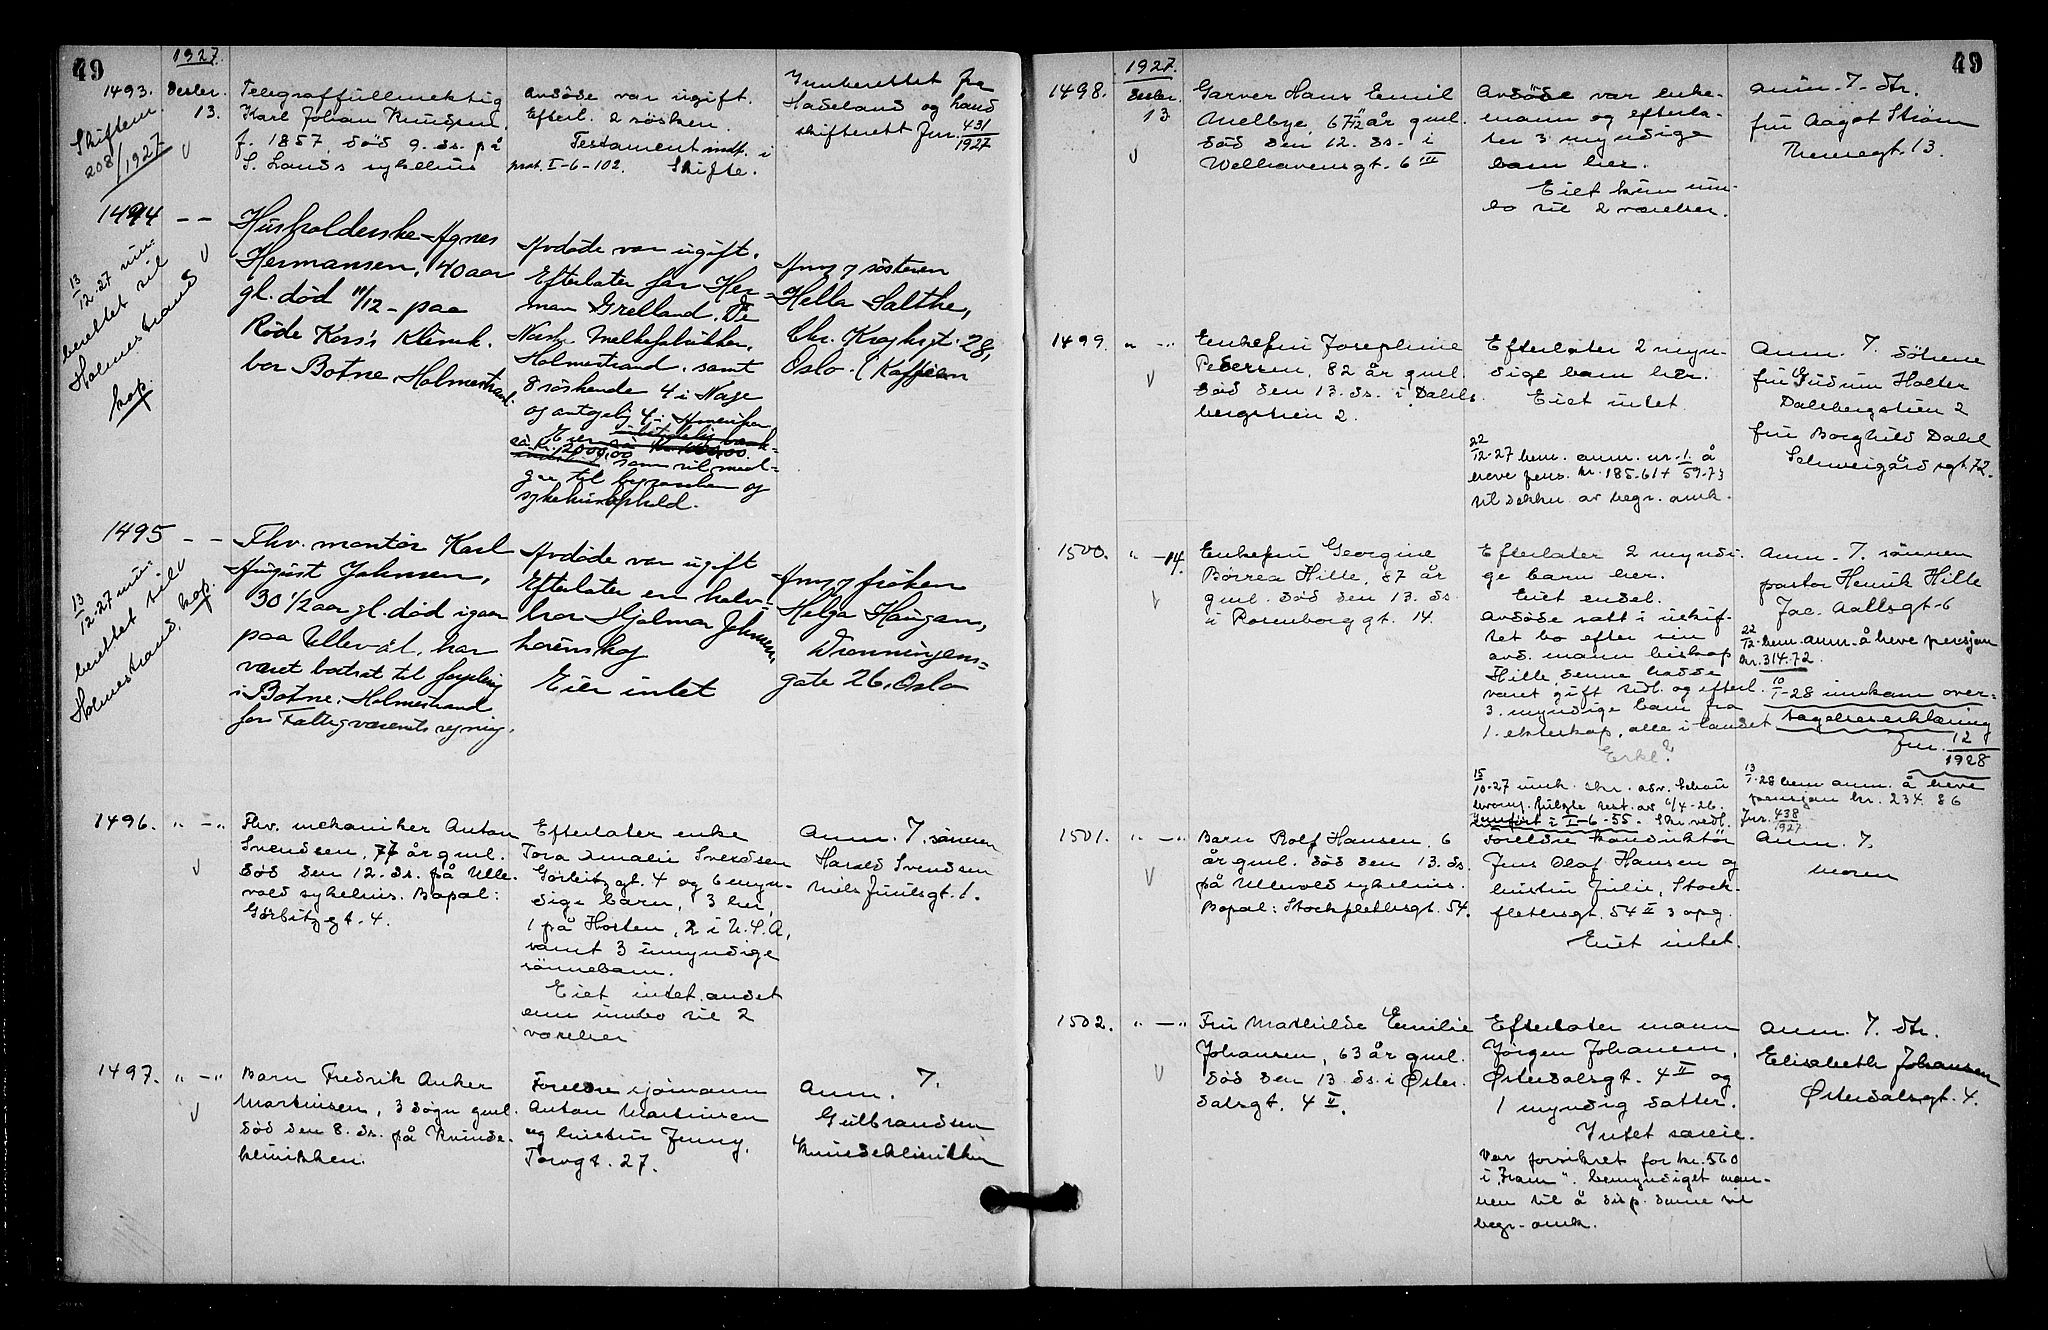 49
1927.
1493.
Skiftem.
208/1927
Desbr.
13.
Telegraffullmektig
Karl Johan Knudsen,
f. 1857, död 9. ds. på
S. Lands sykehus
Avdöde var ugift.
Efterl. 2 sösken.
Testament indt. i
prot. I-6-102. Skifte.
Innberettet fra
Hadeland og Land
skifterett Jnr. 431/1927
1494
13/12-27 inn-
berettet til
Holmestrand
kop.
Husholderske Agnes
Hermansen, 40 aar
gl. død 11/12 - paa
Røde Kors's Klinik.
bor Botne, Holmestrand.
Avdøde var ugift.
Efterlater far Her-
man Grelland, De
Norske Melkefabrikker,
Holmestrand, samt
8 søskende 4 i Norge
og antagelig 4 i Amerika
som vil med-
gaa til begravelsen og
sykehusophold.
Anm. 7 søsteren
Hella Salthe,
Chr. Kroghsgt. 28,
Oslo. (Kaffeen
1495
13/12-27 inn-
berettet til
Holmestrand, kop.
Fhv. montør Karl
August Johnsen,
30 1/2 aar gl. død igaar
paa Ullevål, har
været bortsat til forpleining
i Botne, Holmestrand
for Fattigvæsenets regning.
Avdøde var ugift
Efterlater en halv-
bror Hjalmar Johnsen,
Lørenskog
Eier intet
Anm. 7 frøken
Helga Haugan,
Dronningens-
gate 26, Oslo
1496.
Fhv. mekaniker Anton
Svendsen, 77 år gml.
död den 12. ds. på Ulle-
vold sykehus. Bopæl:
Görbitzgt. 4.
Efterlater enke
Tora Amalie Svendsen
Görbitzgt. 4 og 6 myn-
dige barn, 3 her,
1 på Horten, 2 i U.S.A,
samt 3 umyndige
sönnebarn.
Eiet intet andet
enn innbo til 2
værelser
Anm. 7. sönnen
Harald Svendsen
Niels Juulsgt. 1.
1497.
Barn Fredrik Anker
Martinsen, 3 dögn gml.
död den 8. ds. på Kvinde-
klinikken.
Foreldre sjömann
Anton Martinsen
og hustru Jenny,
Torvgt. 27.
Anm. 7.
Gulbrandsen
Kvindeklinikken
49
1927.
1498.
Desbr.
13
Garver Hans Emil
Melbye, 67 1/2 år gml.
död den 12. ds. i
Welhavensgt. 6 III
Avdöde var enke-
mann og efterla-
ter 3 myndige
barn her.
Eiet kun inn-
bo til 2 værelser.
Anm. 7. dtr.
fru Aagot Ström
Theresegt. 13.
1499.
Enkefru Josephine
Pedersen, 82 år gml.
död den 13. ds. i Dahls-
bergstien 2.
Efterlater 2 myn-
dige barn her.
Eiet intet
22/12-27 bem. anm. nr. 1. å
heve pens. kr. 185.61 + 59.73
til dekkn. av begr. omk.
Anm. 7. dötrene
fru Gudrun Holter
Dalsbergstien 2
fru Borghild Dahl
Schweigårdsgt. 72.
1500.
14.
Enkefru Georgine
Börrea Hille, 87 år
gml. död den 13. ds.
i Rosenborggt. 14.
Efterlater 2 myndi-
ge barn her.
Eiet endel.
Avdöde satt i uskif-
tet bo efter sin
avd. mann biskop
Hille, denne hadde
været gift tidl. og efterl.
3. myndige barn fra
1. ekteskap, alle i landet
Erkl?
15/10-27 innk. skr. adv. Schou
hvorved fulgte test. av 6/4-26.
innfört i I-6-55. Skr. vedl. Jnr. 438/1927
Anm. 7. sönnen
pastor Henrik Hille
Jac. Aallsgt. 6
22/12 bem. anm. å heve pensjon
kr. 314.72.
10/1-28 innkom over-
tagelseserklæring
Jnr. 12/1928
13/1-28 bem anm. å heve
pensjon kr. 234.86
1501.
Barn Rolf Hansen, 6
år gml. död den 13. ds.
på Ullevold sykehus.
Bopæl: Stockflethsgt. 54.
Foreldre konduktör
Jens Olaf Hansen og
hustru Julie, Stock-
flethsgt. 54 II 3 opg.
Eiet intet.
Anm. 7.
moren
1502.
Fru Mathilde Emilie
Johansen, 63 år gml.
död den 13. ds. i Öster-
dalsgt. 4 II.
Efterlater mann
Jörgen Johansen,
Österdalsgt. 4 II og
1 myndig datter.
Intet særeie.
Var forsikret for kr. 560
i "Fram". bemyndiget man-
nen til å disp. denne til
begr. omk.
Anm. 7. dtr.
Elisabeth Johansen
Österdalsgt. 4.